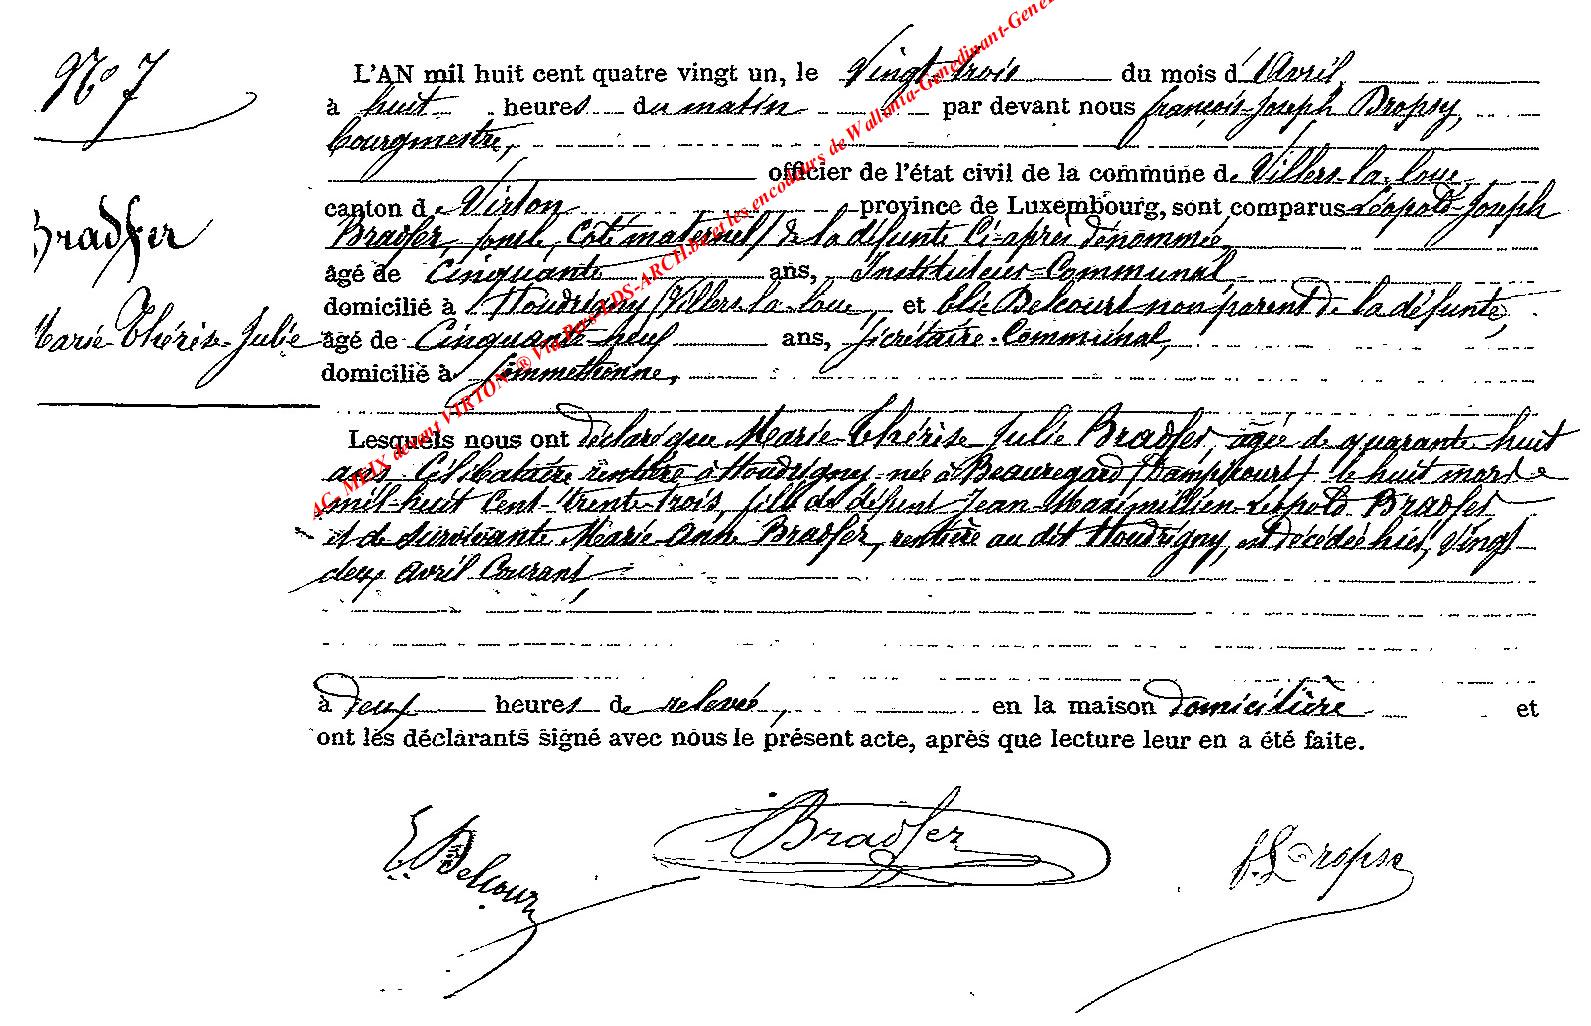 N° 7
Bradfer
Marie-Thérèse-Julie
L'AN mil huit cent quatre vingt un, le Vingt trois du mois d'Avril,
à huit heures du matin par devant nous françois-Joseph Dropsy,
bourgmestre,
officier de l'état civil de la commune de Villers-la-loue
canton de Virton province de Luxembourg, sont comparus Léopold-Joseph
Bradfer, (oncle, côté maternel) de la défunte ci-après dénommée,
âgé de Cinquante ans, Instituteur-Communal,
domicilié à Houdrigny (Villers-la-loue, et Elie Delcourt non parent de la défunte,
âgé de Cinquante-neuf ans, Secrétaire-Communal,
domicilié à Sommethonne,
Lesquels nous ont déclaré que Marie-Thérèse-Julie Bradfer, âgée de quarante-huit
ans Célibataire rentière à Houdrigny née à Beauregard (Dampicourt) le huit mars
mil-huit Cent-trente-trois, fille de défunt Jean-Maximillien-Léopold Bradfer
et de survivante Marie-Anne Bradfer, rentière au dit Houdrigny, est décédée hier, Vingt-
deux avril Courant,
à deux heures de relevée, en la maison domicilière et
ont les déclarants signé avec nous le présent acte, après que lecture leur en a été faite.
E. Delcour Bradfer f. J. Dropsy